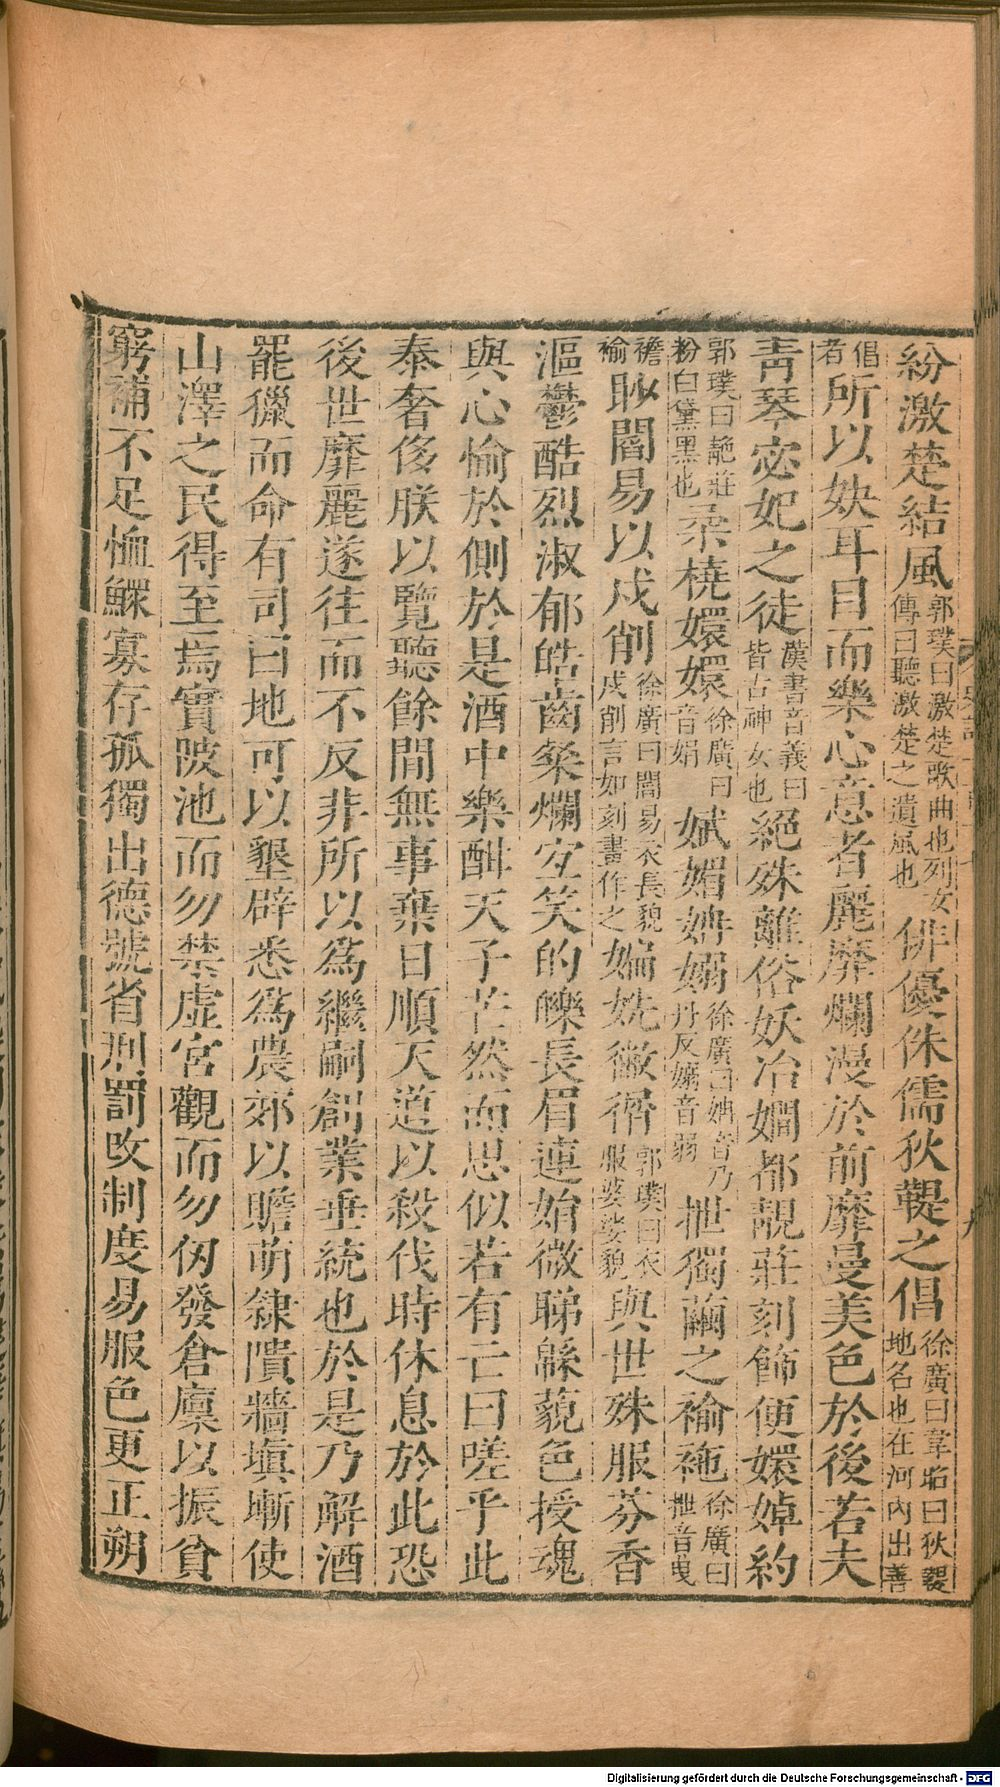 紛激楚結風郭璞曰激楚歌曲也列女傳曰聽激楚之遺風也俳優侏儒狄鞮之倡徐廣曰韋昭曰狄鞮地名也在河內出善
倡者所以娛耳目而樂心意者麗靡爛漫於前靡曼美色於後若夫
青琴宓妃之徒漢書音義曰皆古神女也絕殊離俗妖冶嫺都靚莊刻飾便嬛婥約
郭璞曰靘莊粉白黛黑也柔橈嬛嬛徐廣曰音娟嫵媚姌嫋徐廣曰姌音乃丹反嫋音弱抴獨繭之褕袘徐廣曰抴音曳
襜褕眇閻易以戌削徐廣曰閻易衣長貌戌削言如刻畫作之媥姺徶㣯郭璞曰衣服婆娑貌與世殊服芬香
漚鬱酷烈淑郁皓齒粲爛宜笑的皪長眉連娟微睇緜藐色授魂
與心愉於側於是酒中樂酣天子芒然而思似若有亡曰嗟乎此
泰奢侈朕以覽聽餘間無事棄日順天道以殺伐時休息於此恐
後世靡麗遂往而不反非所以為繼嗣創業垂統也於是乃解酒
罷獵而命有司曰地可以墾辟悉為農郊以贍萌隸隤牆塡塹使
山澤之民得至焉實陂池而勿禁虛宮觀而勿仞發倉廩以振貧
窮補不足恤鰥寡存孤獨出德號省刑罰改制度易服色更正朔
Digitalisierung gefördert durch die Deutsche Forschungsgemeinschaft - DFG